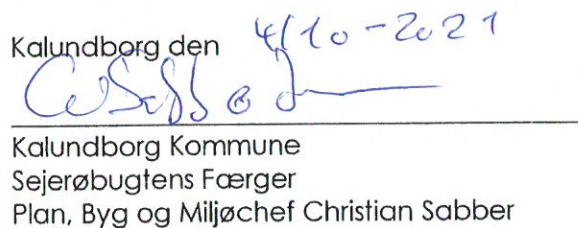 Kalundborg den 4/10-2021
Kalundborg Kommune
Sejerøbugtens Færger
Plan, Byg og Miljøchef Christian Sabber